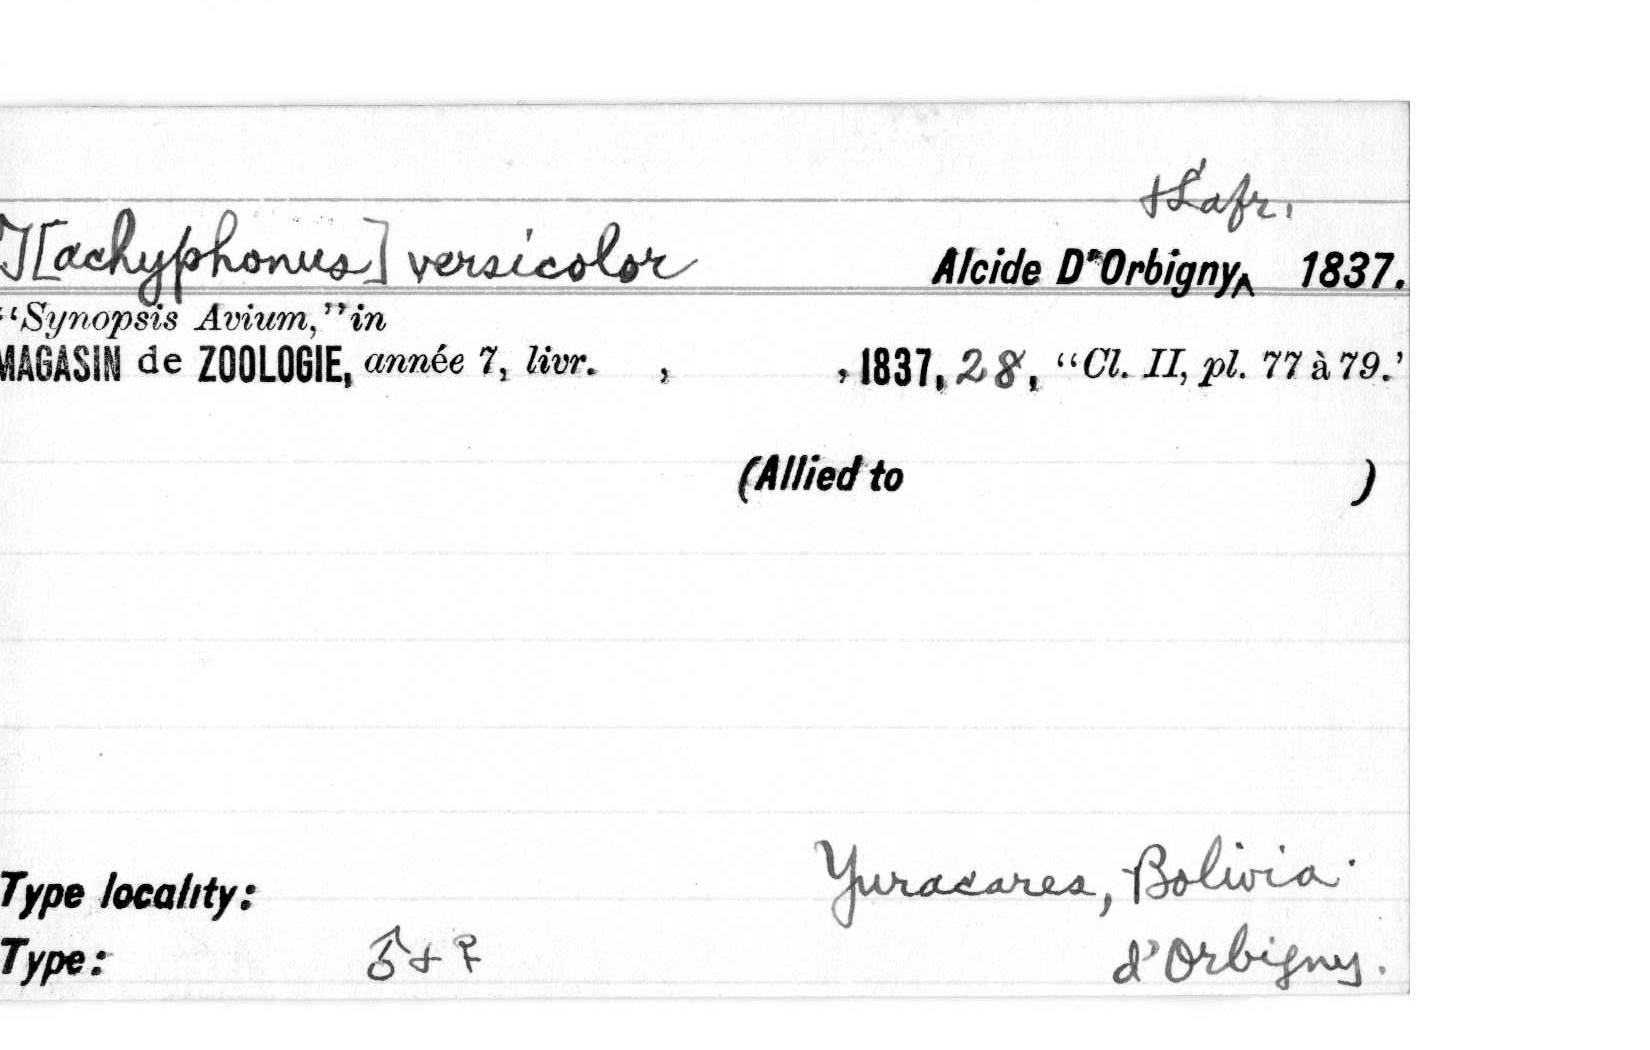 + Lafr.
T[achyphonus] versicolor Alcide D'Orbigny^ 1837.
"Synopsis Avium," in
MAGASIN de ZOOLOGIE, année 7, livr. , , 1837, 28, "Cl. II, pl. 77 à 79.'
(Allied to )
Type locality: Yuracares, Bolivia.
Type: ♂ + ♀ d'Orbigny.